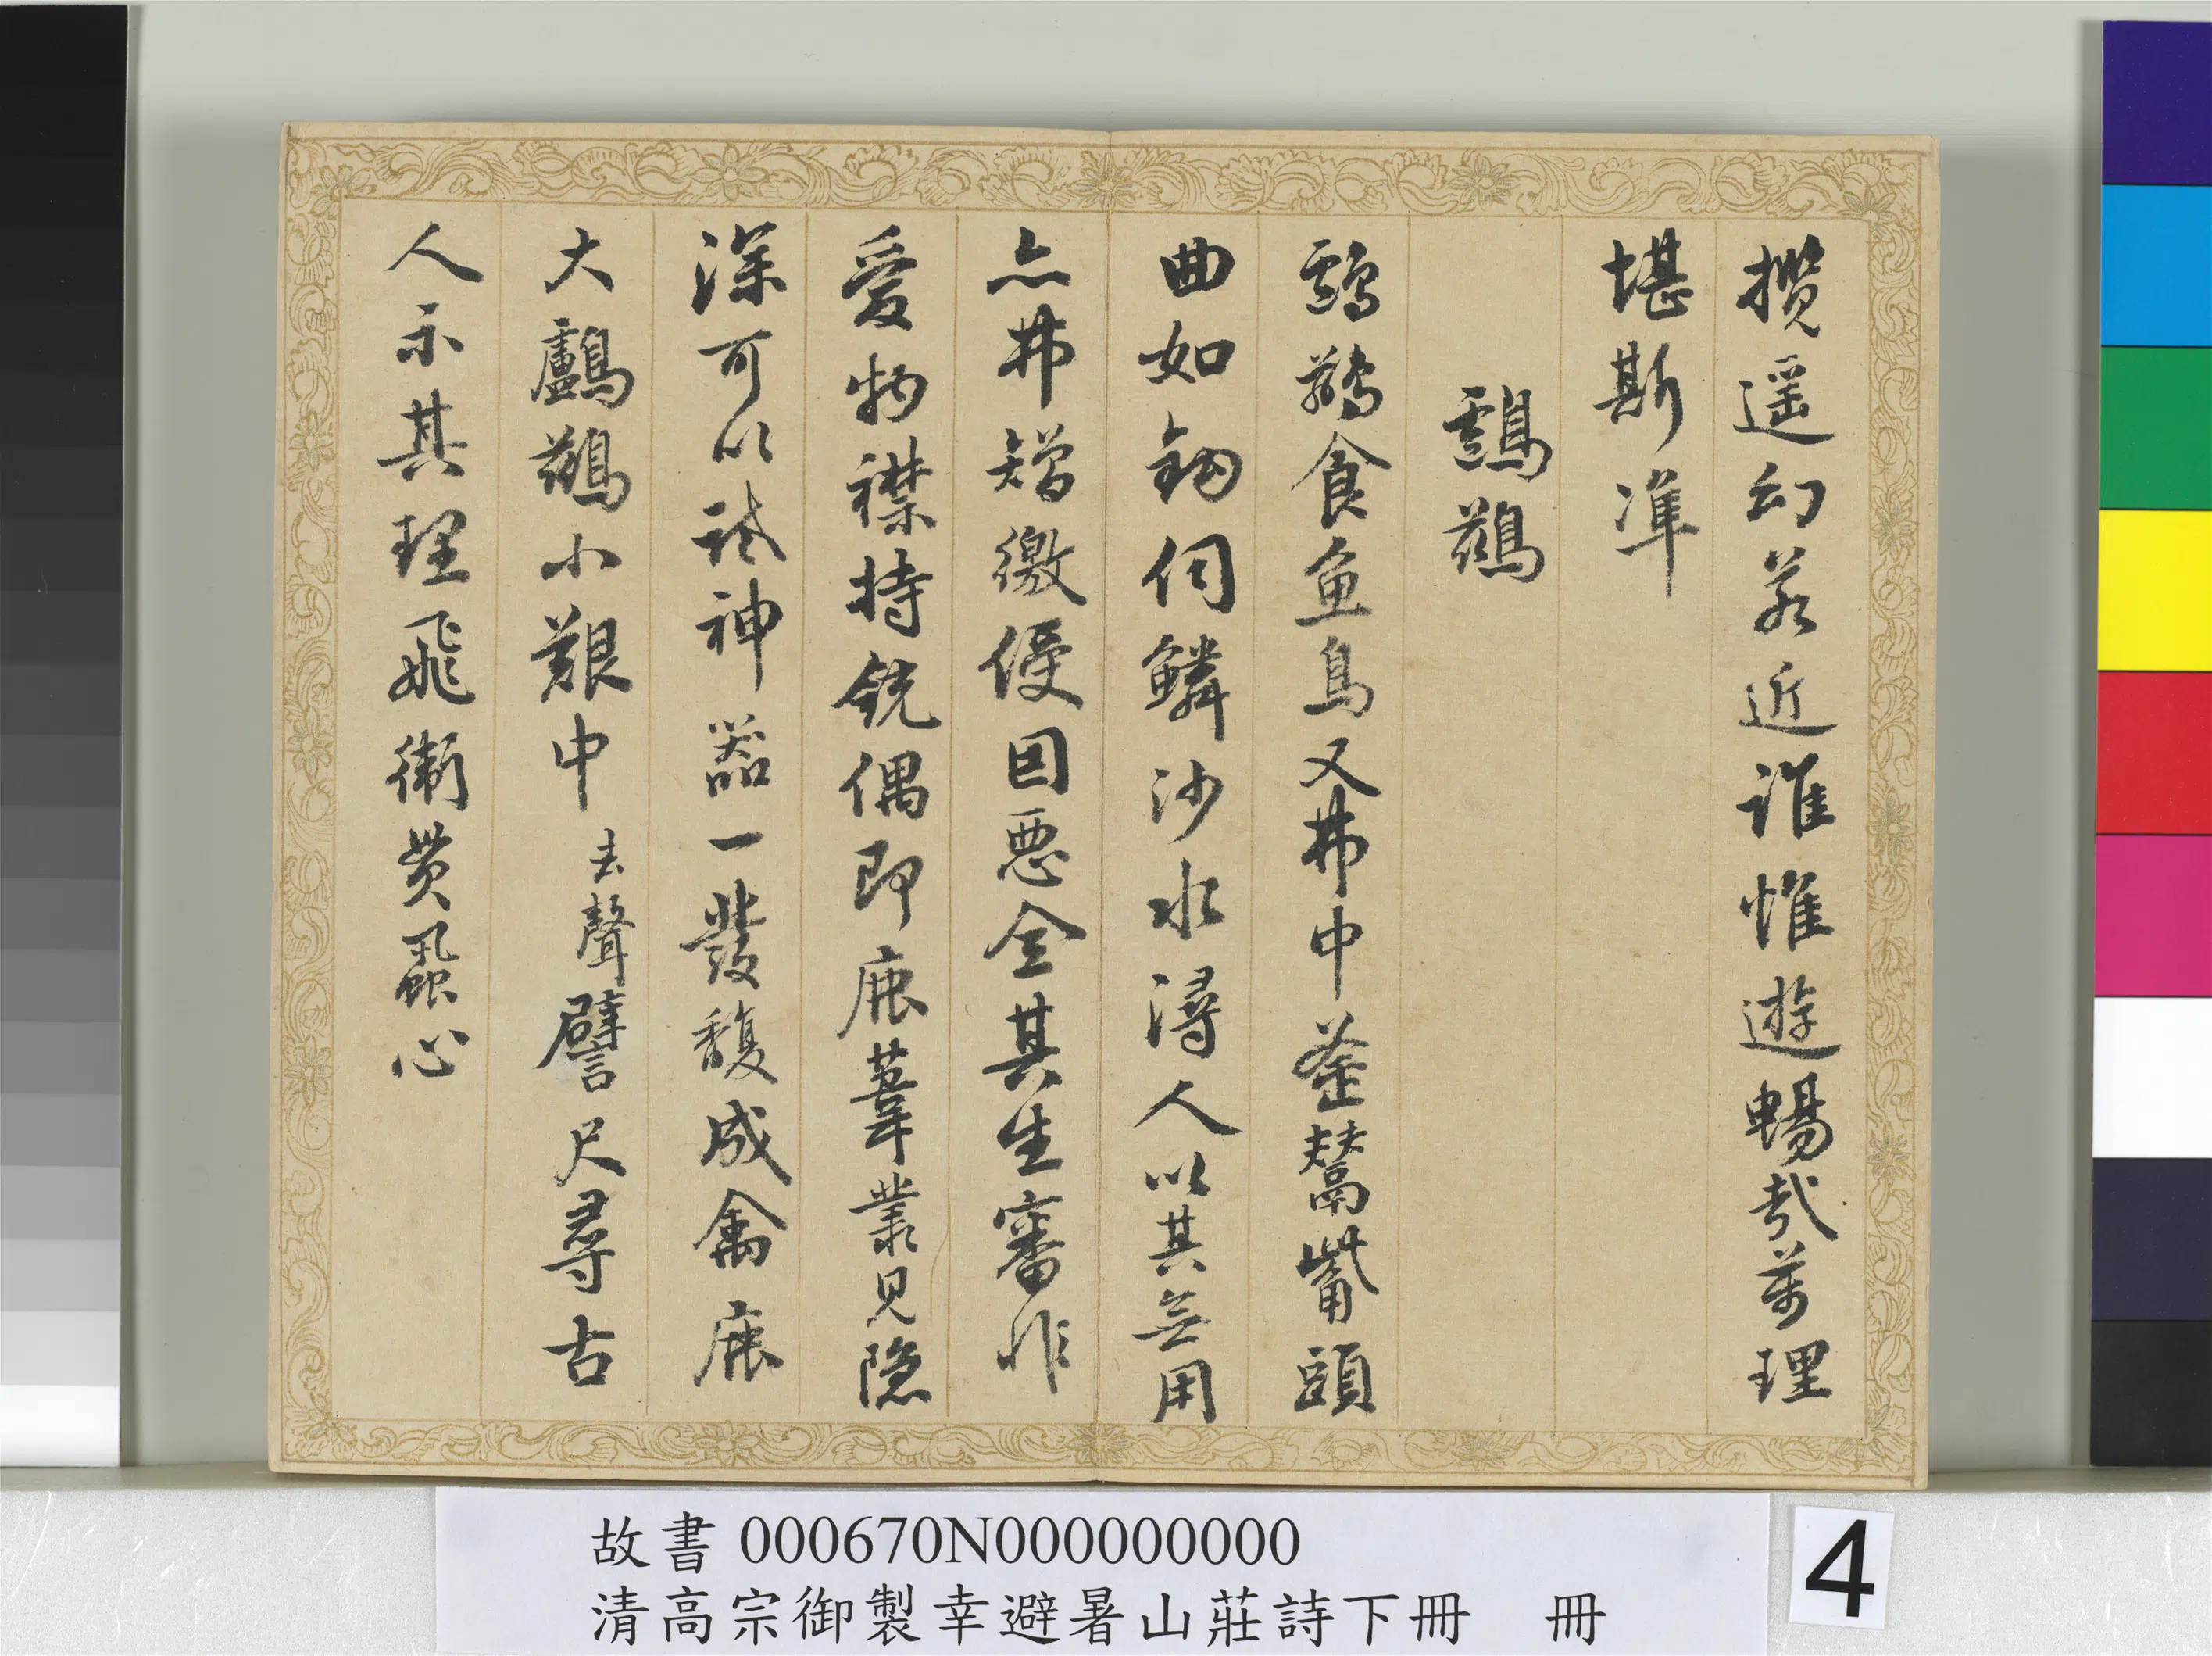 攬遥幻若近誰惟遊暢哉萬理
堪斯準
鸕鷀
鸕鷀食魚鳥又弗中釜鬵觜頭
曲如鈎伺鱗沙水潯人以其無用
亦弗矰繳侵因惡全其生審非
愛物襟持銃偶即鹿葦叢見隱
深可以試神器一發馥成禽鹿
大鸕鷀小艱中去聲譬尺尋古
人示其理飛衛貫蝨心
故書 000670N000000000
清高宗御製幸避暑山莊詩下冊 冊
4